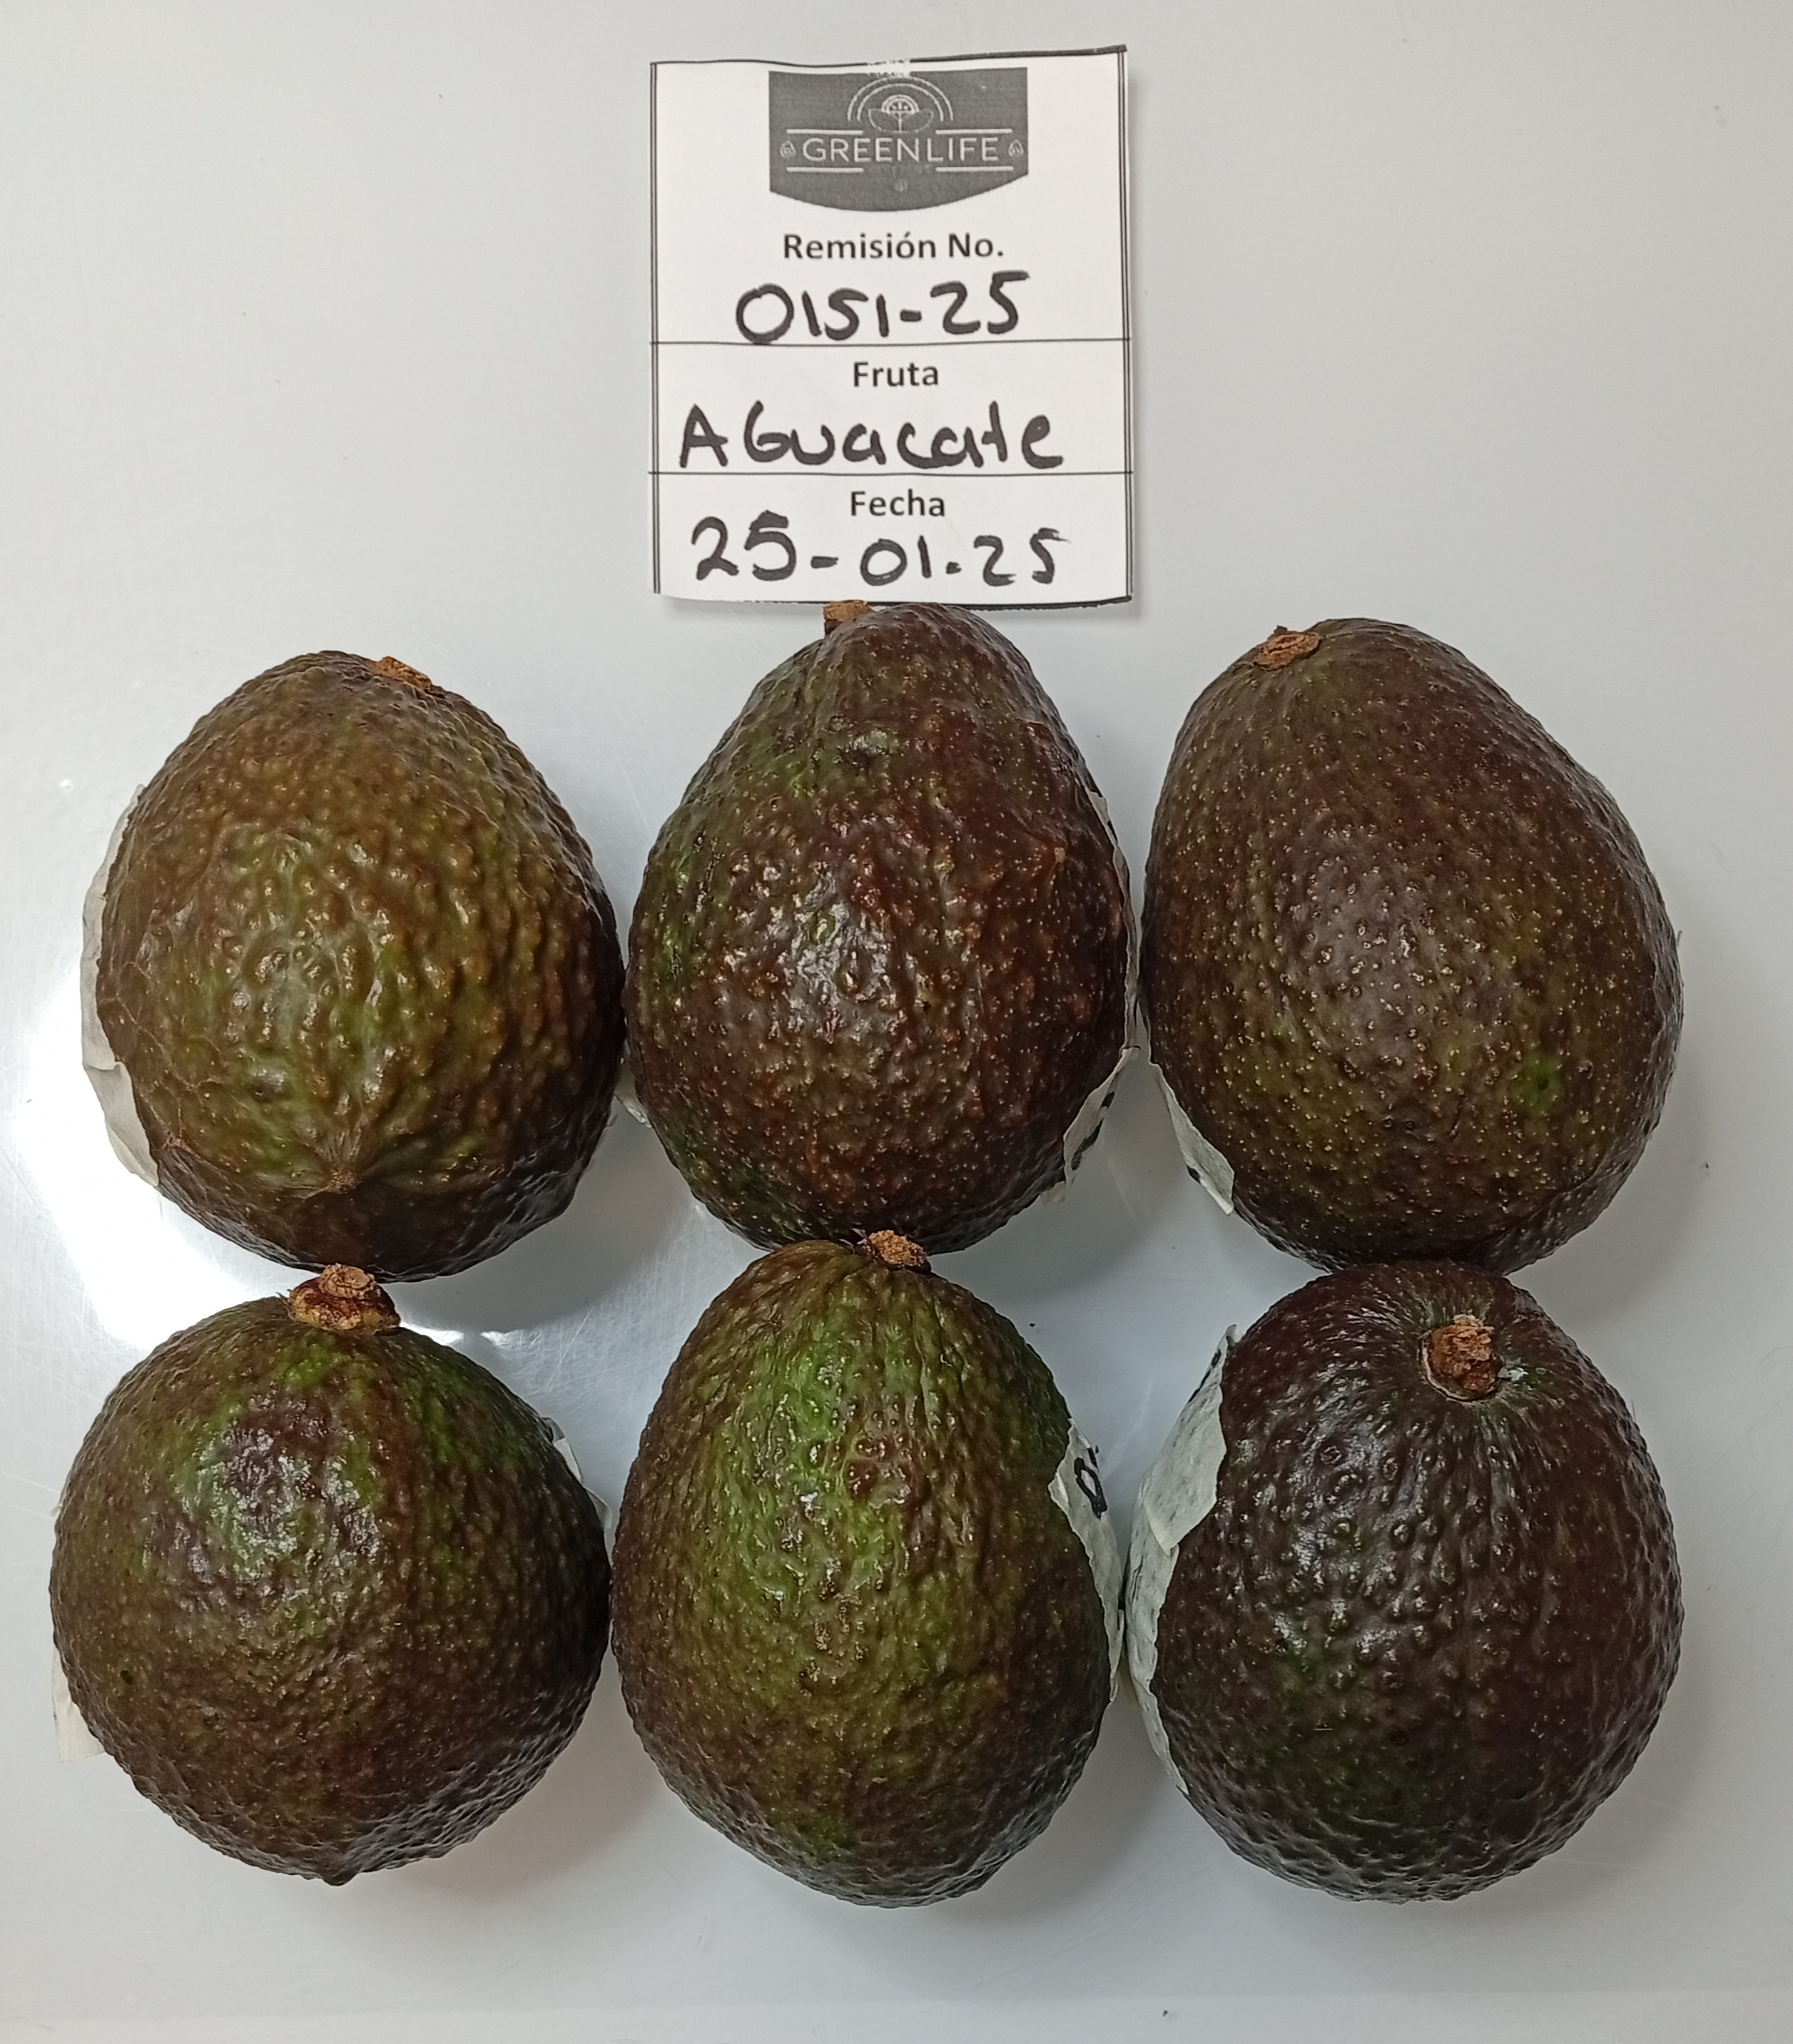 GREENLIFE
Remisión No.
0151-25
Fruta
AGuacate
Fecha
25-01-25